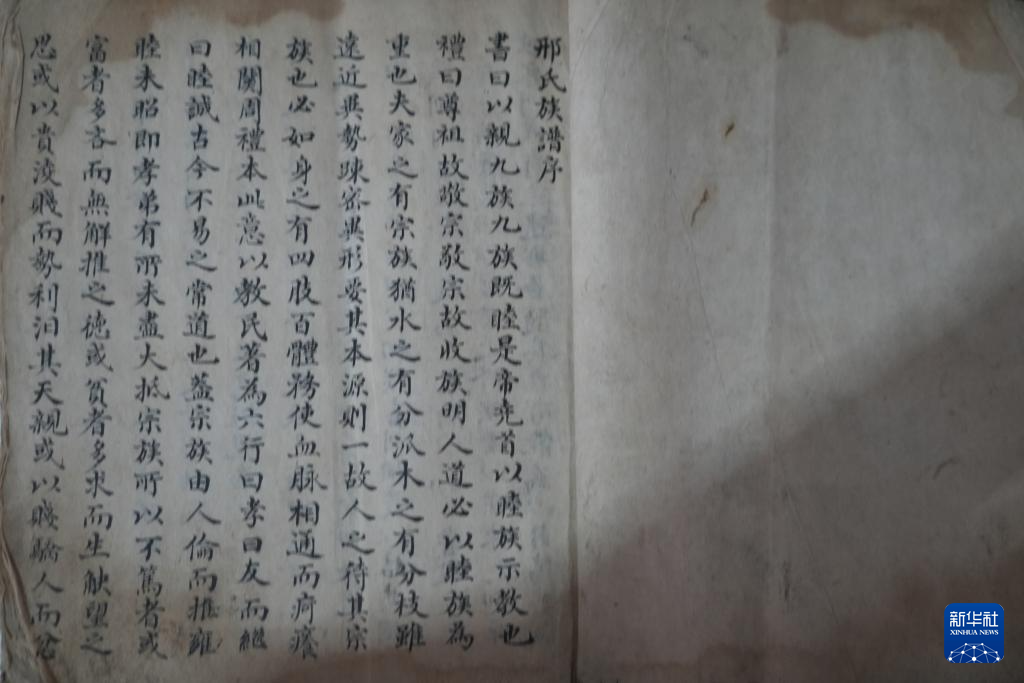 邢氏族譜序
書曰以親九族九族既睦是帝堯首以睦族示教也
禮曰尊祖故敬宗敬宗故收族明人道必以睦族為
重也夫家之有宗族猶水之有分派木之有分枝雖
遠近異勢踈密異形要其本源則一故人之待其宗
族也必如身之有四肢百體務使血脉相通而痾癢
相関周禮本此意以教民著為六行曰孝曰友而繼
曰睦誠古今不易之常道也蓋宗族由人倫而推雍
睦未昭即孝弟有所未盡大抵宗族所以不篤者或
富者多吝而無解推之徳或貧者多求而生觖望之
思或以貴淩賤而勢利汨其天親或以賤驕人而忿
新华社
XINHUA NEWS